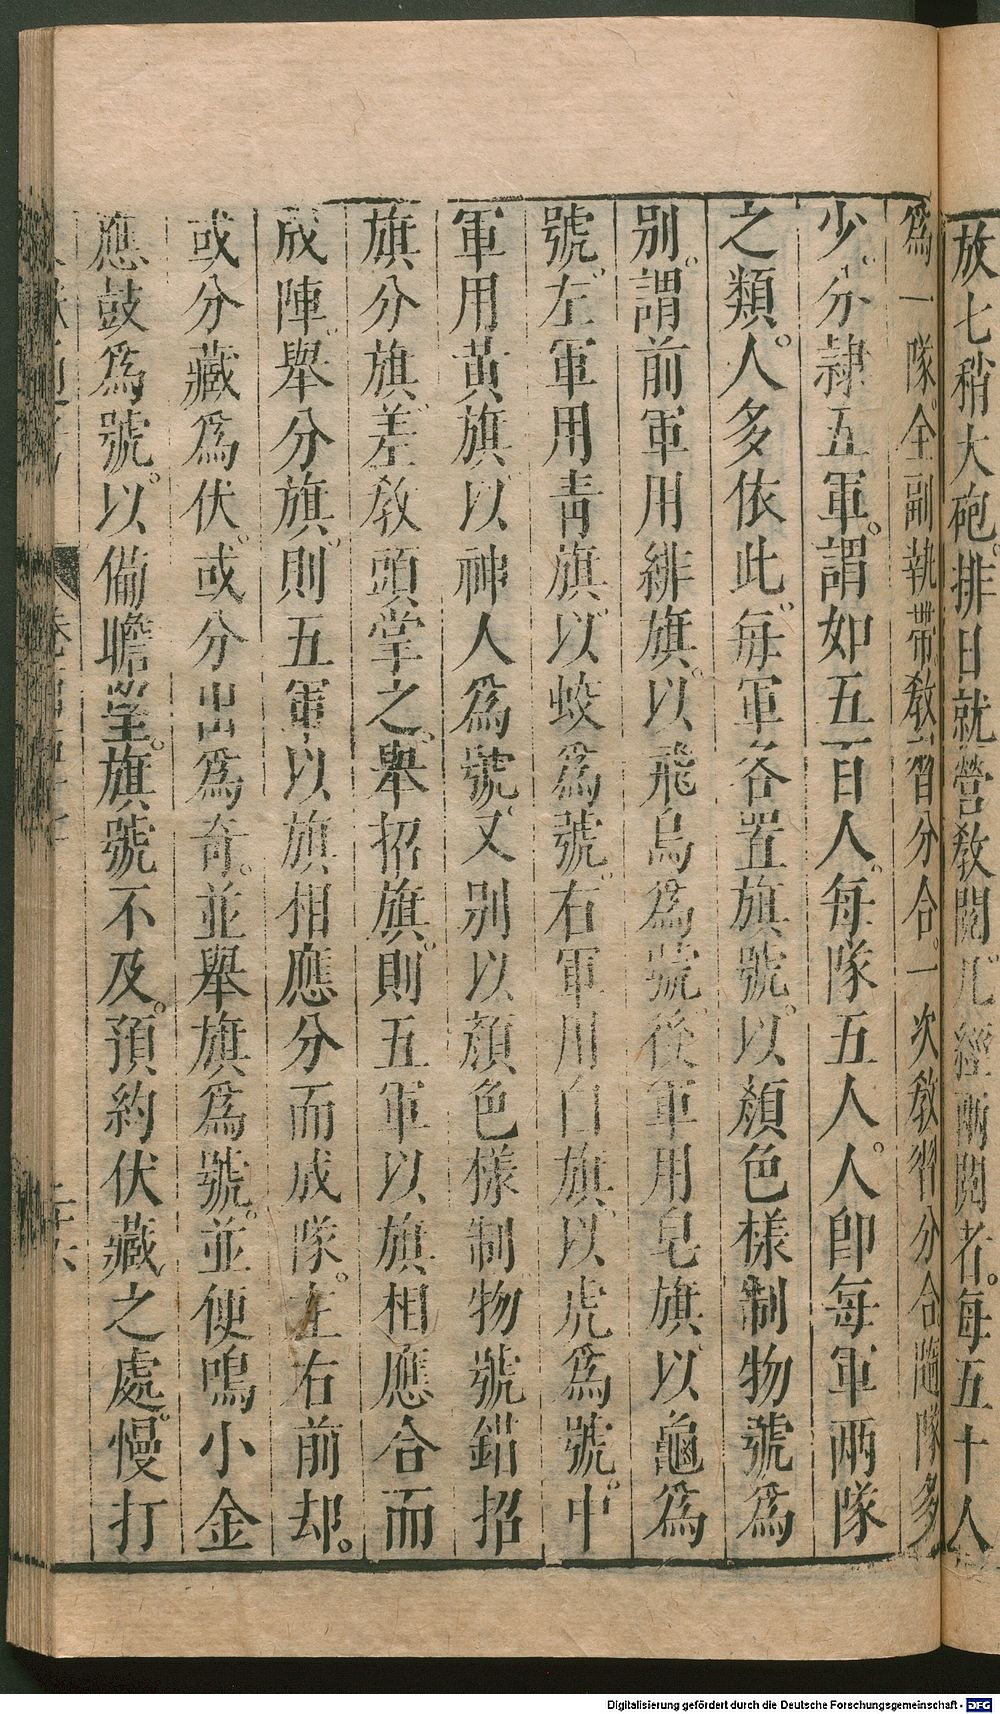 放七稍大砲排日就營教閱凡經兩閱者每五十人
爲一隊全副執帶教習分合一次教習分合隨隊多
少分隷五軍謂如五百人每隊五人人卽每軍兩隊
之類人多依此每軍各置旗號以顏色樣制物號爲
别謂前軍用緋旗以飛鳥爲號後軍用皂旗以龜爲
號左軍用青旗以蛟爲號右軍用白旗以虎爲號中
軍用黃旗以神人爲號又别以顏色樣制物號錯招
旗分旗差教頭掌之舉招旗則五軍以旗相應合而
成陣舉分旗則五軍以旗相應分而成隊左右前却
或分藏爲伏或分出爲奇並舉旗爲號並使鳴小金
應鼓爲號以備瞻望旗號不及預約伏藏之處慢打
Digitalisierung gefördert durch die Deutsche Forschungsgemeinschaft - DFG